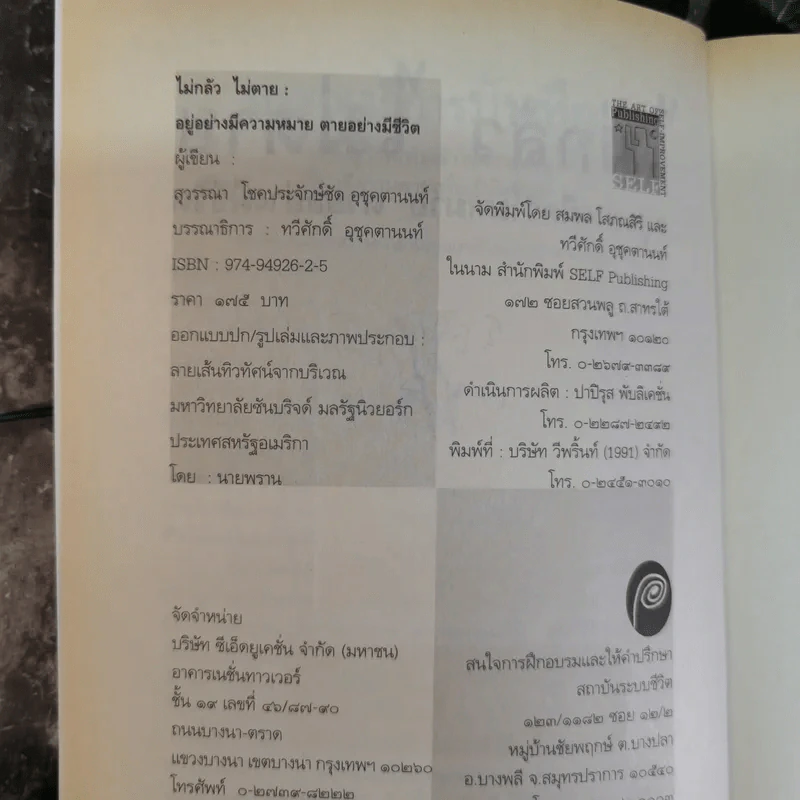 ไม่กลัว ไม่ตาย :
อยู่อย่างมีความหมาย ตายอย่างมีชีวิต
ผู้เขียน :
สุวรรณา โชคประจักษ์ชัด อุชุคตานนท์
บรรณาธิการ : ทวีศักดิ์ อุชุคตานนท์
ISBN : 974-94926-2-5
ราคา ๑๗๕ บาท
ออกแบบปก/รูปเล่มและภาพประกอบ :
ลายเส้นทิวทัศน์จากบริเวณ
มหาวิทยาลัยซันบริจด์ มลรัฐนิวยอร์ก
ประเทศสหรัฐอเมริกา
โดย : นายพราน
THE ART OF
SELF IMPROVEMENT
Publishing
จัดพิมพ์โดย สมพล โสภณสิริ และ
ทวีศักดิ์ อุชุคตานนท์
ในนาม สำนักพิมพ์ SELF Publishing
๑๗๒ ซอยสวนพลู ถ.สาทรใต้
กรุงเทพฯ ๑๐๑๒๐
โทร. ๐-๒๖๗๙-๓๓๘๙
ดำเนินการผลิต : ปาปิรุส พับลิเคชั่น
โทร. ๐-๒๒๘๗-๒๔๙๒
พิมพ์ที่ : บริษัท วีพริ้นท์ (1991) จำกัด
โทร. ๐-๒๔๕๑-๓๐๑๐
จัดจำหน่าย
บริษัท ซีเอ็ดยูเคชั่น จำกัด (มหาชน)
อาคารเนชั่นทาวเวอร์
ชั้น ๑๙ เลขที่ ๔๖/๘๗-๙๐
ถนนบางนา-ตราด
แขวงบางนา เขตบางนา กรุงเทพฯ ๑๐๒๖๐
โทรศัพท์ ๐-๒๗๓๙-๘๒๒๒
สนใจการฝึกอบรมและให้คำปรึกษา
สถาบันระบบชีวิต
๑๒๓/๑๑๘๒ ซอย ๑๒/๒
หมู่บ้านชัยพฤกษ์ ต.บางปลา
อ.บางพลี จ.สมุทรปราการ ๑๐๕๔๐